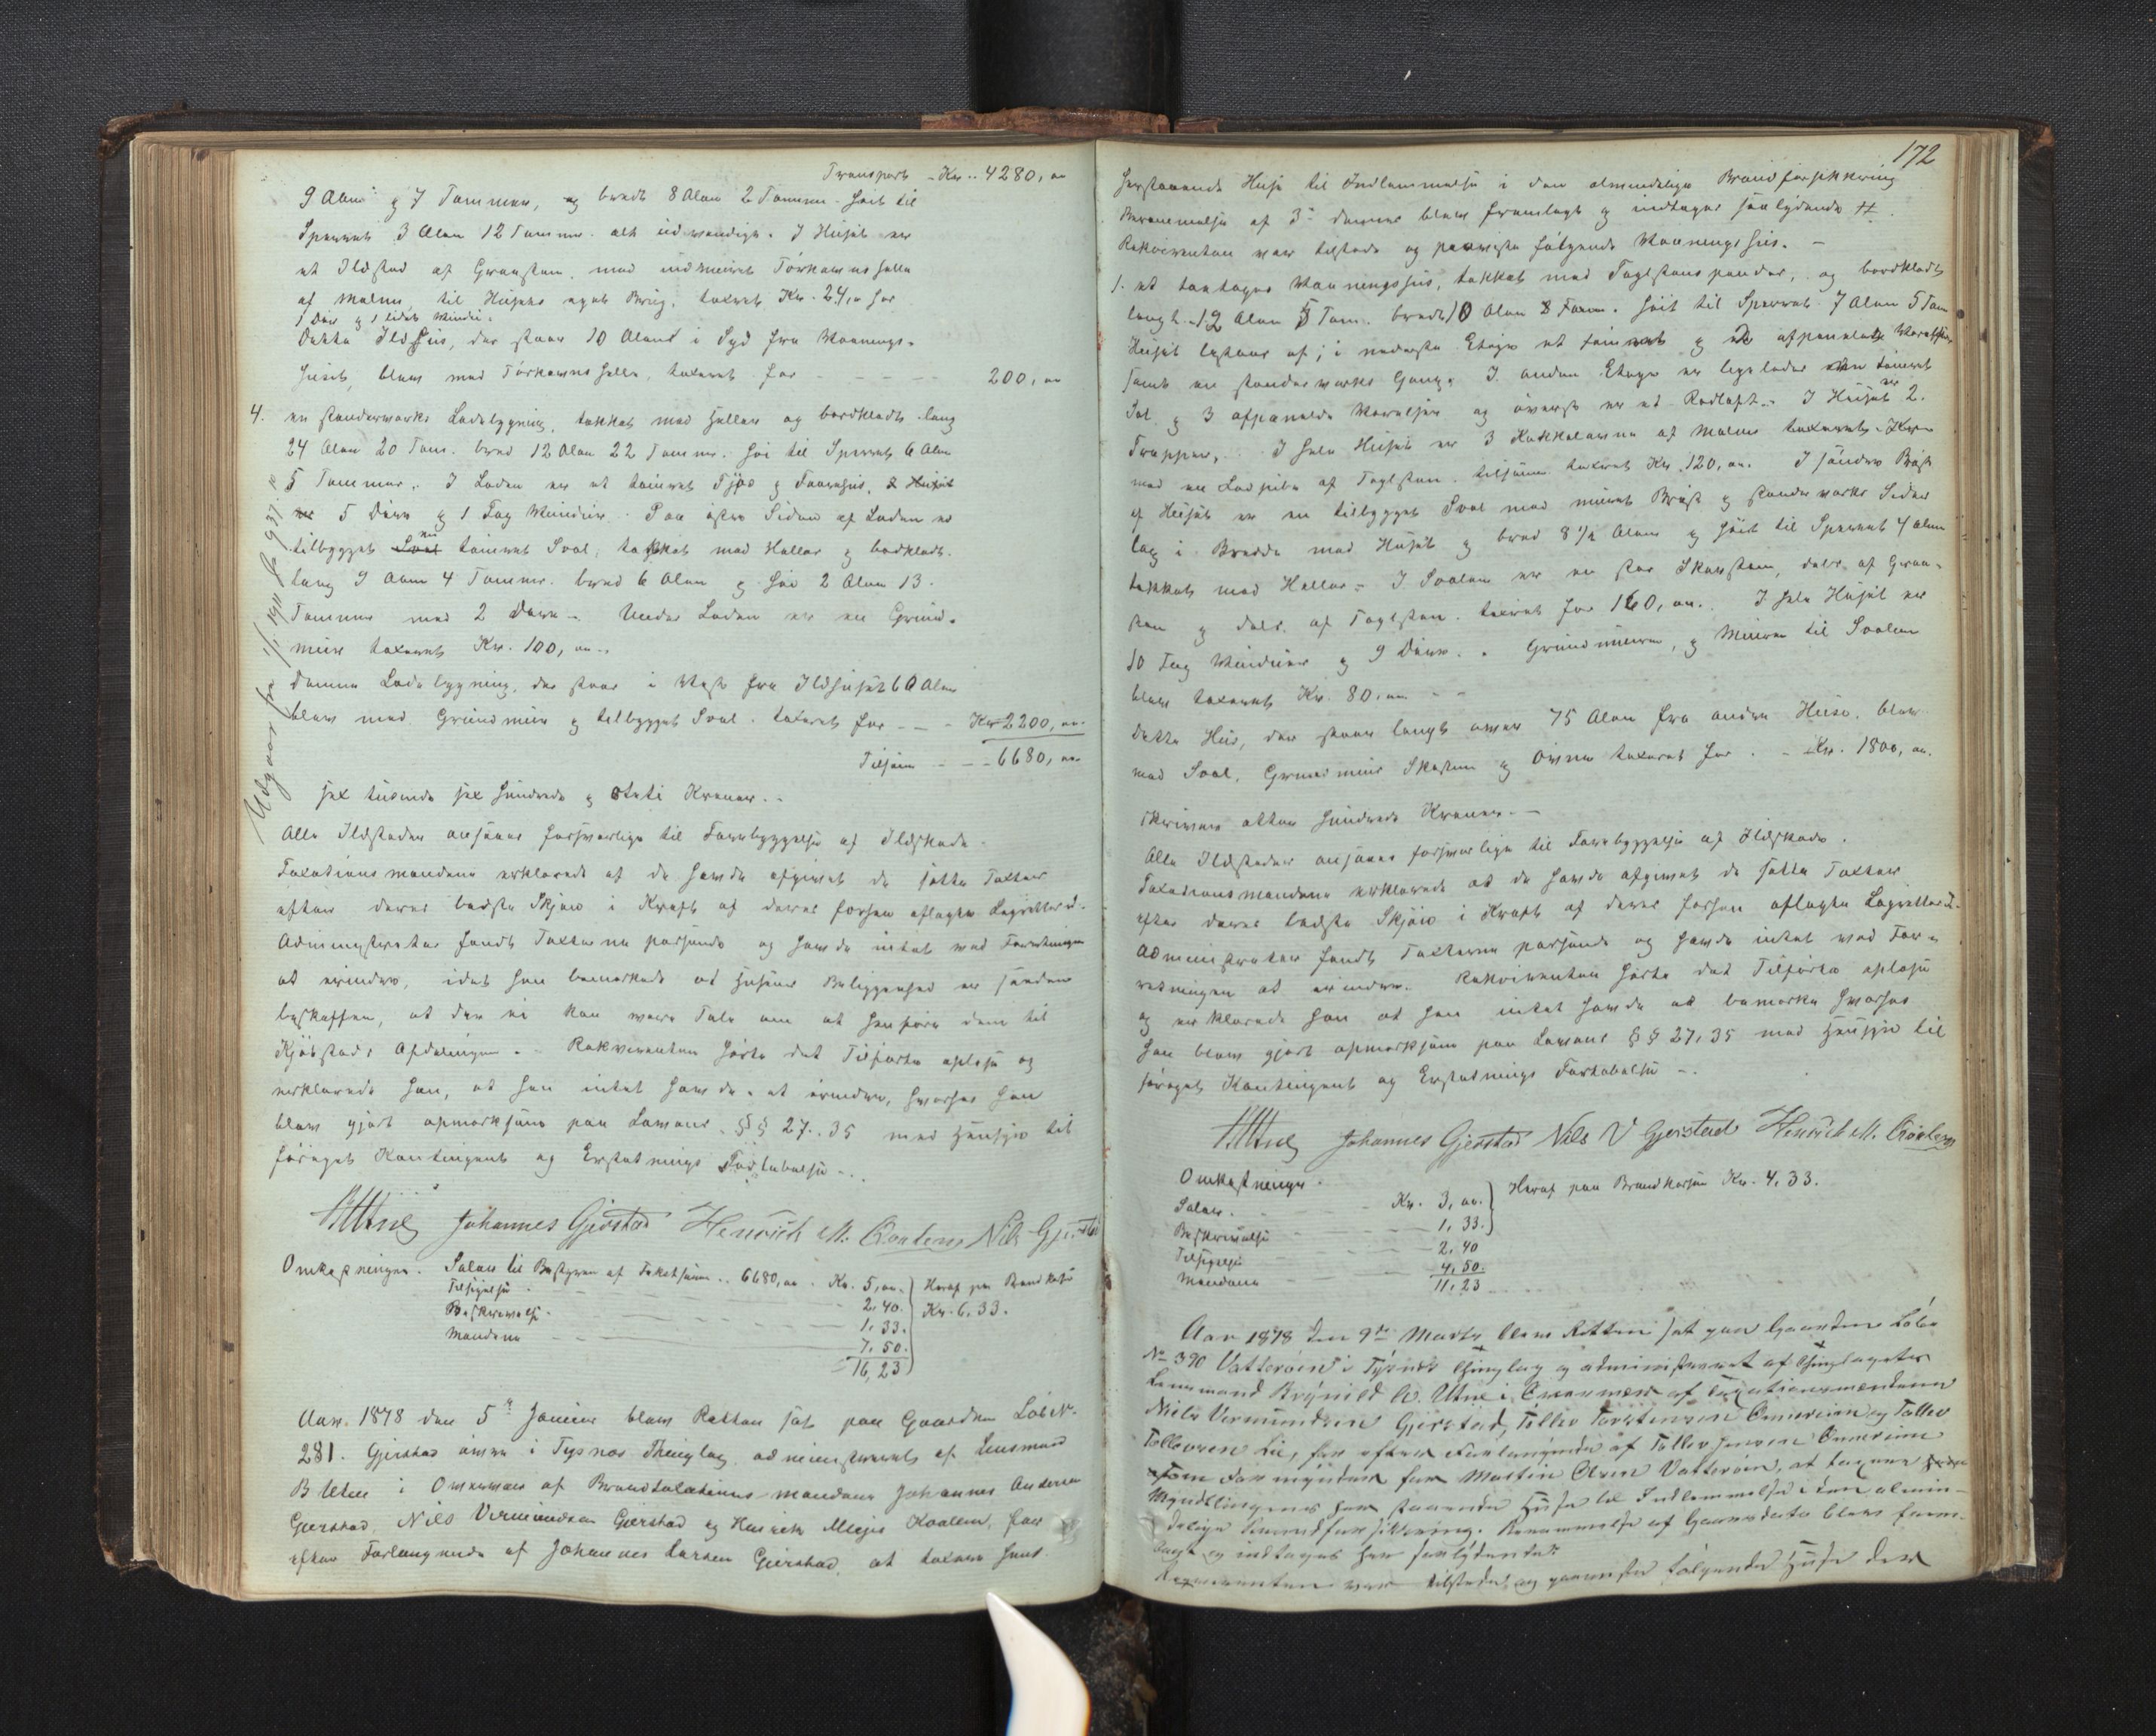 Transport - Kr. 4280, "
9 Alen og 7 Tommer, og bredt 8 Alen 2 Tommer. høit til
Sperret 3 Alen 12 Tommer. alt udvendigt. I Huset er
et Ildsted af Graasten, med indmuret Tørkeovnshelle
af Malm, til Husets eget Brug. taxeret Kr. 24, "
1 Dør og 1 lidet Vindu.
Dette Ildhus, der staar 10 Alen i Syd fra Vaanings-
huset, blev med Tørkeovnshelle, taxeret for - - - - 200, "
4. en standerværks Ladebygning, tækket med Heller og bordklædt. lang
24 Alen 20 Tom. bred 12 Alen 22 Tommer. høi til Sperret 6 Alen
5 Tommer. I Laden er et tømret Fjøs og Faarehus,
5 Døre og 1 Fag Vinduer. Paa østre Siden af Laden er
tilbygget en tømret Sval, tækket med Heller og bordklædt.
lang 9 Alen 4 Tommer. bred 6 Alen og høi 2 Alen 13
Tommer med 2 Døre. Under Laden er en Grund-
muur taxeret Kr. 100, "
Denne Ladebygning, der staar i Vest fra Ildhuset 60 Alen
blev med Grundmuur og tilbygget Sval. taxeret for - - Kr 2200, "
Tilsam - - - 6680, "
Udgaar fra 1/1 1911 937
sex tusende sex hundrede og otteti Kroner.
Alle Ildsteder ansaaes forsvarlige til Forebyggelse af Ildskade.
Taxationsmændene erklærede at de havde afgivet de satte Taxter
efter deres bedste Skjøn i Kraft af deres forhen aflagte Lagrettesed.
Administrator fandt Taxterne passende og havde intet ved Forretningen
at erindre, idet han bemærkede at Husenes Beliggenhed er saaden
beskaffen, at der ei kan være Tale om at henføre dem til
Kjøbstads Afdelingen. Rekvirenten hørte det Tilførte oplæse og
erklærede han, at han intet havde at erindre, hvorhos han
blev gjort opmærksom paa Lovens §§ 27. 35 med Hensyn til
forøget Kontingent og Erstatnings Fortabelse.
BUtne Johannes Gjerstad Henrich M. Kaalen Nils Gjerstad
Omkostninger. Salær til Bestyren af Taxtsum .. 6680, " . Kr. 5, " . Heraf paa Brandkasse
Tilsigelse - - - 2,40. Kr. 6,33.
Beskrivelse - - - 1,33.
Mændene - - - 7,50.
16,23
Aar 1878 den 5te Januar blev Retten sat paa Gaarden Løb N.
281. Gjerstad øvre i Tysnæs Thinglag administreret af Lensmand
B Utne i Overvær af Brandtaxations-mændene Johannes Andersen
Gjerstad, Nils Vermundsen Gjerstad og Henrik Kaalen, for
efter Forlangende af Johannes Larsen Gjerstad at taxere hans
172
herstaaende Huse til Indlemmelse i den almindelige Brandforsikkring
Berammelse af 3de dennes blev fremlagt og indtages saalydende #.
Rekvirenten var tilstede og paaviste følgende Vaaningshus. -
1. et toetages Vaaningshus, tækket med Taglstenspander, og bordklædt
langt. 12 Alen 5 Tom. bredt 10 Alen 8 Tom. høit til Sperret 7 Alen 5 Tom
Huset bestaar af; i nederste Etage et tømret og afpanelede Værelser
samt en standerværks Gang. I anden Etage er ligeledes en tømret
Sal og 3 afpanelede Værelser og øverst er et Rødloft. I Huset er 2
Trapper, I hele Huset er 3 Kakkelovne af Malm taxeret Kr.
med en Ladpibe af Taglsten. tilsammen taxeret Kr. 120, ". I søndre Brøst
af Huset er en tilbygget Sval med muret Brøst og standerværks Sider
lig i Bredde med Huset og bred 8 1/2 Alen og høit til Sperret 4 Alen
tækket med Heller. I Svalen er en stor Skorsten, dels af Graa-
sten og dels af Taglsten. taxeret for 160, ". I hele Huset er
10 Fag Vinduer og 9 Døre. Grundmuren, og Muren til Svalen
blev taxeret Kr. 80, " - -
Dette Hus, der staar langt over 75 Alen fra andre Huse. blev
med Sval, Grundmuur Skorsten og Ovne taxeret for - Kr. 1800, ".
skriver atten hundrede Kroner. -
Alle Ildsteder ansaaes forsvarlige til Forebyggelse af Ildskade.
Taxationsmændene erklærede at de havde afgivet de satte Taxter
efter deres bedste Skjøn i Kraft af deres forhen aflagte Lagrettesed.
Administrator fandt Taxterne passende og havde intet ved For-
retningen at erindre. Rekvirenten hørte det Tilførte oplæse
og erklærede han at han intet havde at bemærke hvorhos
han blev gjort opmærksom paa Lovens §§ 27, 35 med Hensyn til
forøget Kontingent og Erstatnings Fortabelse -.
BUtne Johannes Gjerstad Nils V Gjerstad Henrich M. Kaalen
Omkostninger.
Salær. - - - Kr. 3, ". Heraf paa Brandkasse Kr. 4,33.
Beskrivelse - - - 1,33.
Tilsigelse - - - 2,40
Mændene - - - 4,50.
11,23
Aar 1878 den 9de Marts blev Retten sat paa Gaarden Løbe
No 390 Vatterøen i Tysnæs Thinglag og administreret af Thinglagets
Lensmand Brynild A. Utne i Overvær af Taxationsmændene
Nils Vermundsen Gjerstad, Tollev Torstensen Onnereim og Tollev
Tollevsen Lie, for efter Forlangende af Tollev Jensen Onnereim
som Formynder for Martin Olsen Vatterøen, at taxere
Myndlingens her staaende Huse til Indlemmelse i den almin-
delige Brandforsikkring. Berammelse af Gaarsdato blev frem-
lagt og indtages her saalydende:
Rekvirenten var tilstede og paaviste følgende Huse der